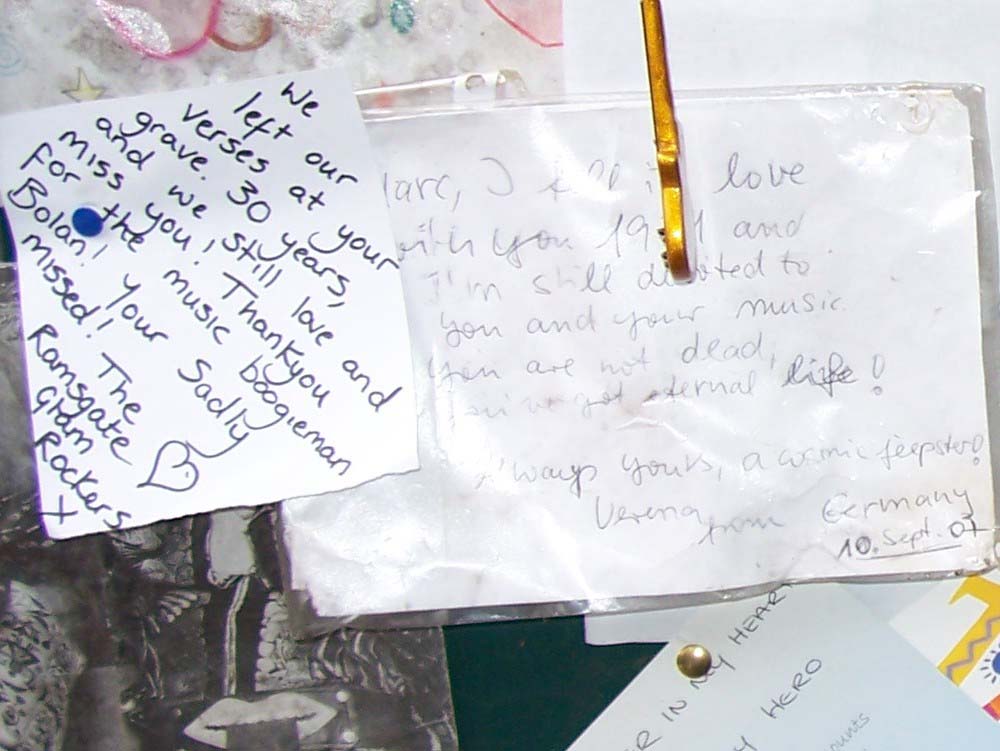 We
left our
verses at your
grave. 30 years,
and we still love and
miss you! Thankyou
for the music boogieman
Bolan! your Sadly
missed! The
Ramsgate
Glam
Rockers
X
arc, I fell in love
with you and
I'm still devoted to
you and your music.
You are not dead,
You've got eternal life!
Always yours, a cosmic feepster!
Verena from Germany
10. Sept. 07
ER IN MY HEART
Y HERO